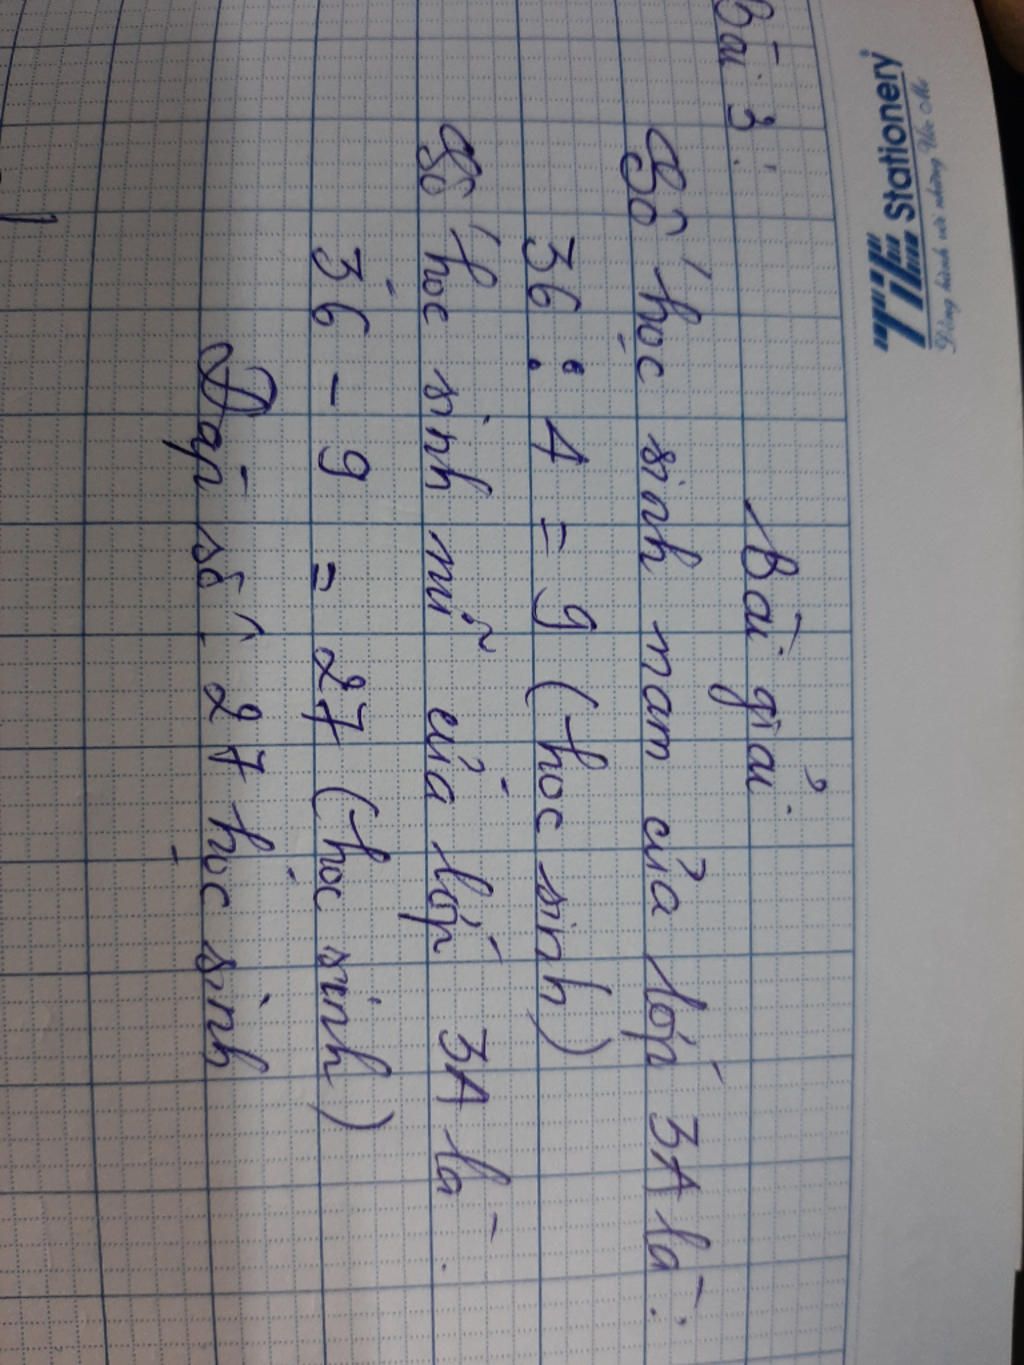 TiTi Stationery
Đồng hành với những Ước Mơ
Bài 3:
Bài giải
Số học sinh nam của lớp 3A là:
36 : 4 = 9 (học sinh)
Số học sinh nữ của lớp 3A là:
36 - 9 = 27 (học sinh)
Đáp số: 27 học sinh